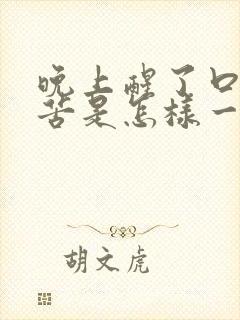 晚上醒了口
苦是怎样一
胡文虎